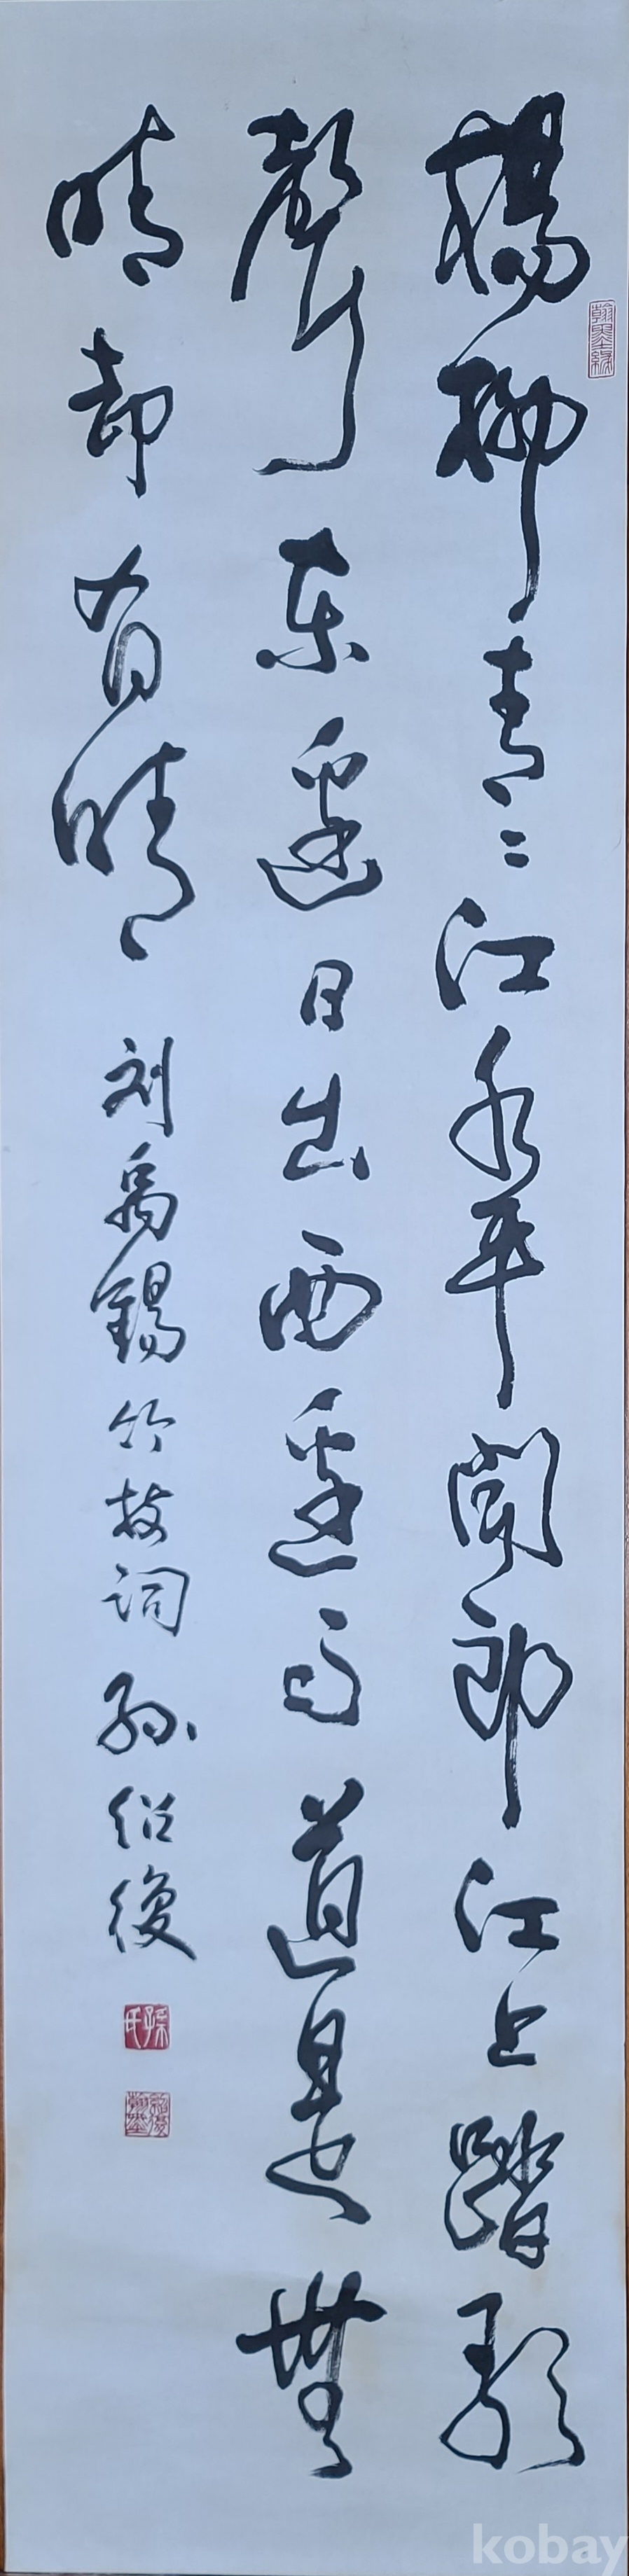 楊柳青〻江水平聞郎江上踏歌
聲東邊日出西邊雨道是無
晴却有晴 刘禹錫竹枝詞 孫紹
翰墨緣
孫氏
kobay